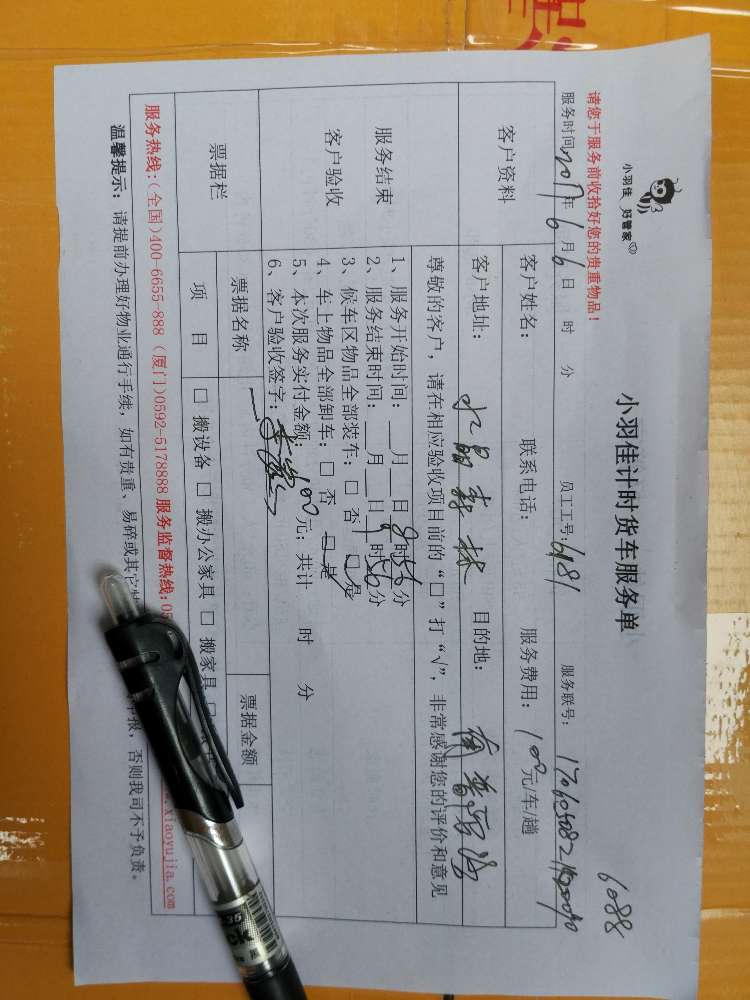 小羽佳 好管家
小羽佳计时货车服务单
6088
请您于服务前收拾好您的贵重物品！
服务时间2017年6月6日 时 分 员工工号：6181 服务联号：
客户资料 客户姓名： 联系电话： 服务费用：100元/车/趟
客户地址：水晶森林 目的地：
尊敬的客户，请在相应验收项目前的“□”打“√”，非常感谢您的评价和意见
服务结束
客户验收
1、服务开始时间：__月__日8时56分
2、服务结束时间：__月__日9时56分
3、候车区物品全部装车：□ 否 □ 是
4、车上物品全部卸车：□ 否 □ 是
5、本次服务实付金额：100元；共计 时 分
6、客户验收签字：
票据栏 票据名称 票据金额
项 目 □ 搬设备 □ 搬办公家具 □ 搬家具 □
服务热线：(全国)400-6655-888（厦门)0592-5178888 服务监督热线：05 .xiaoyujia.com
温馨提示：请提前办理好物业通行手续，如有贵重、易碎或其它 申报，否则我司不予负责。